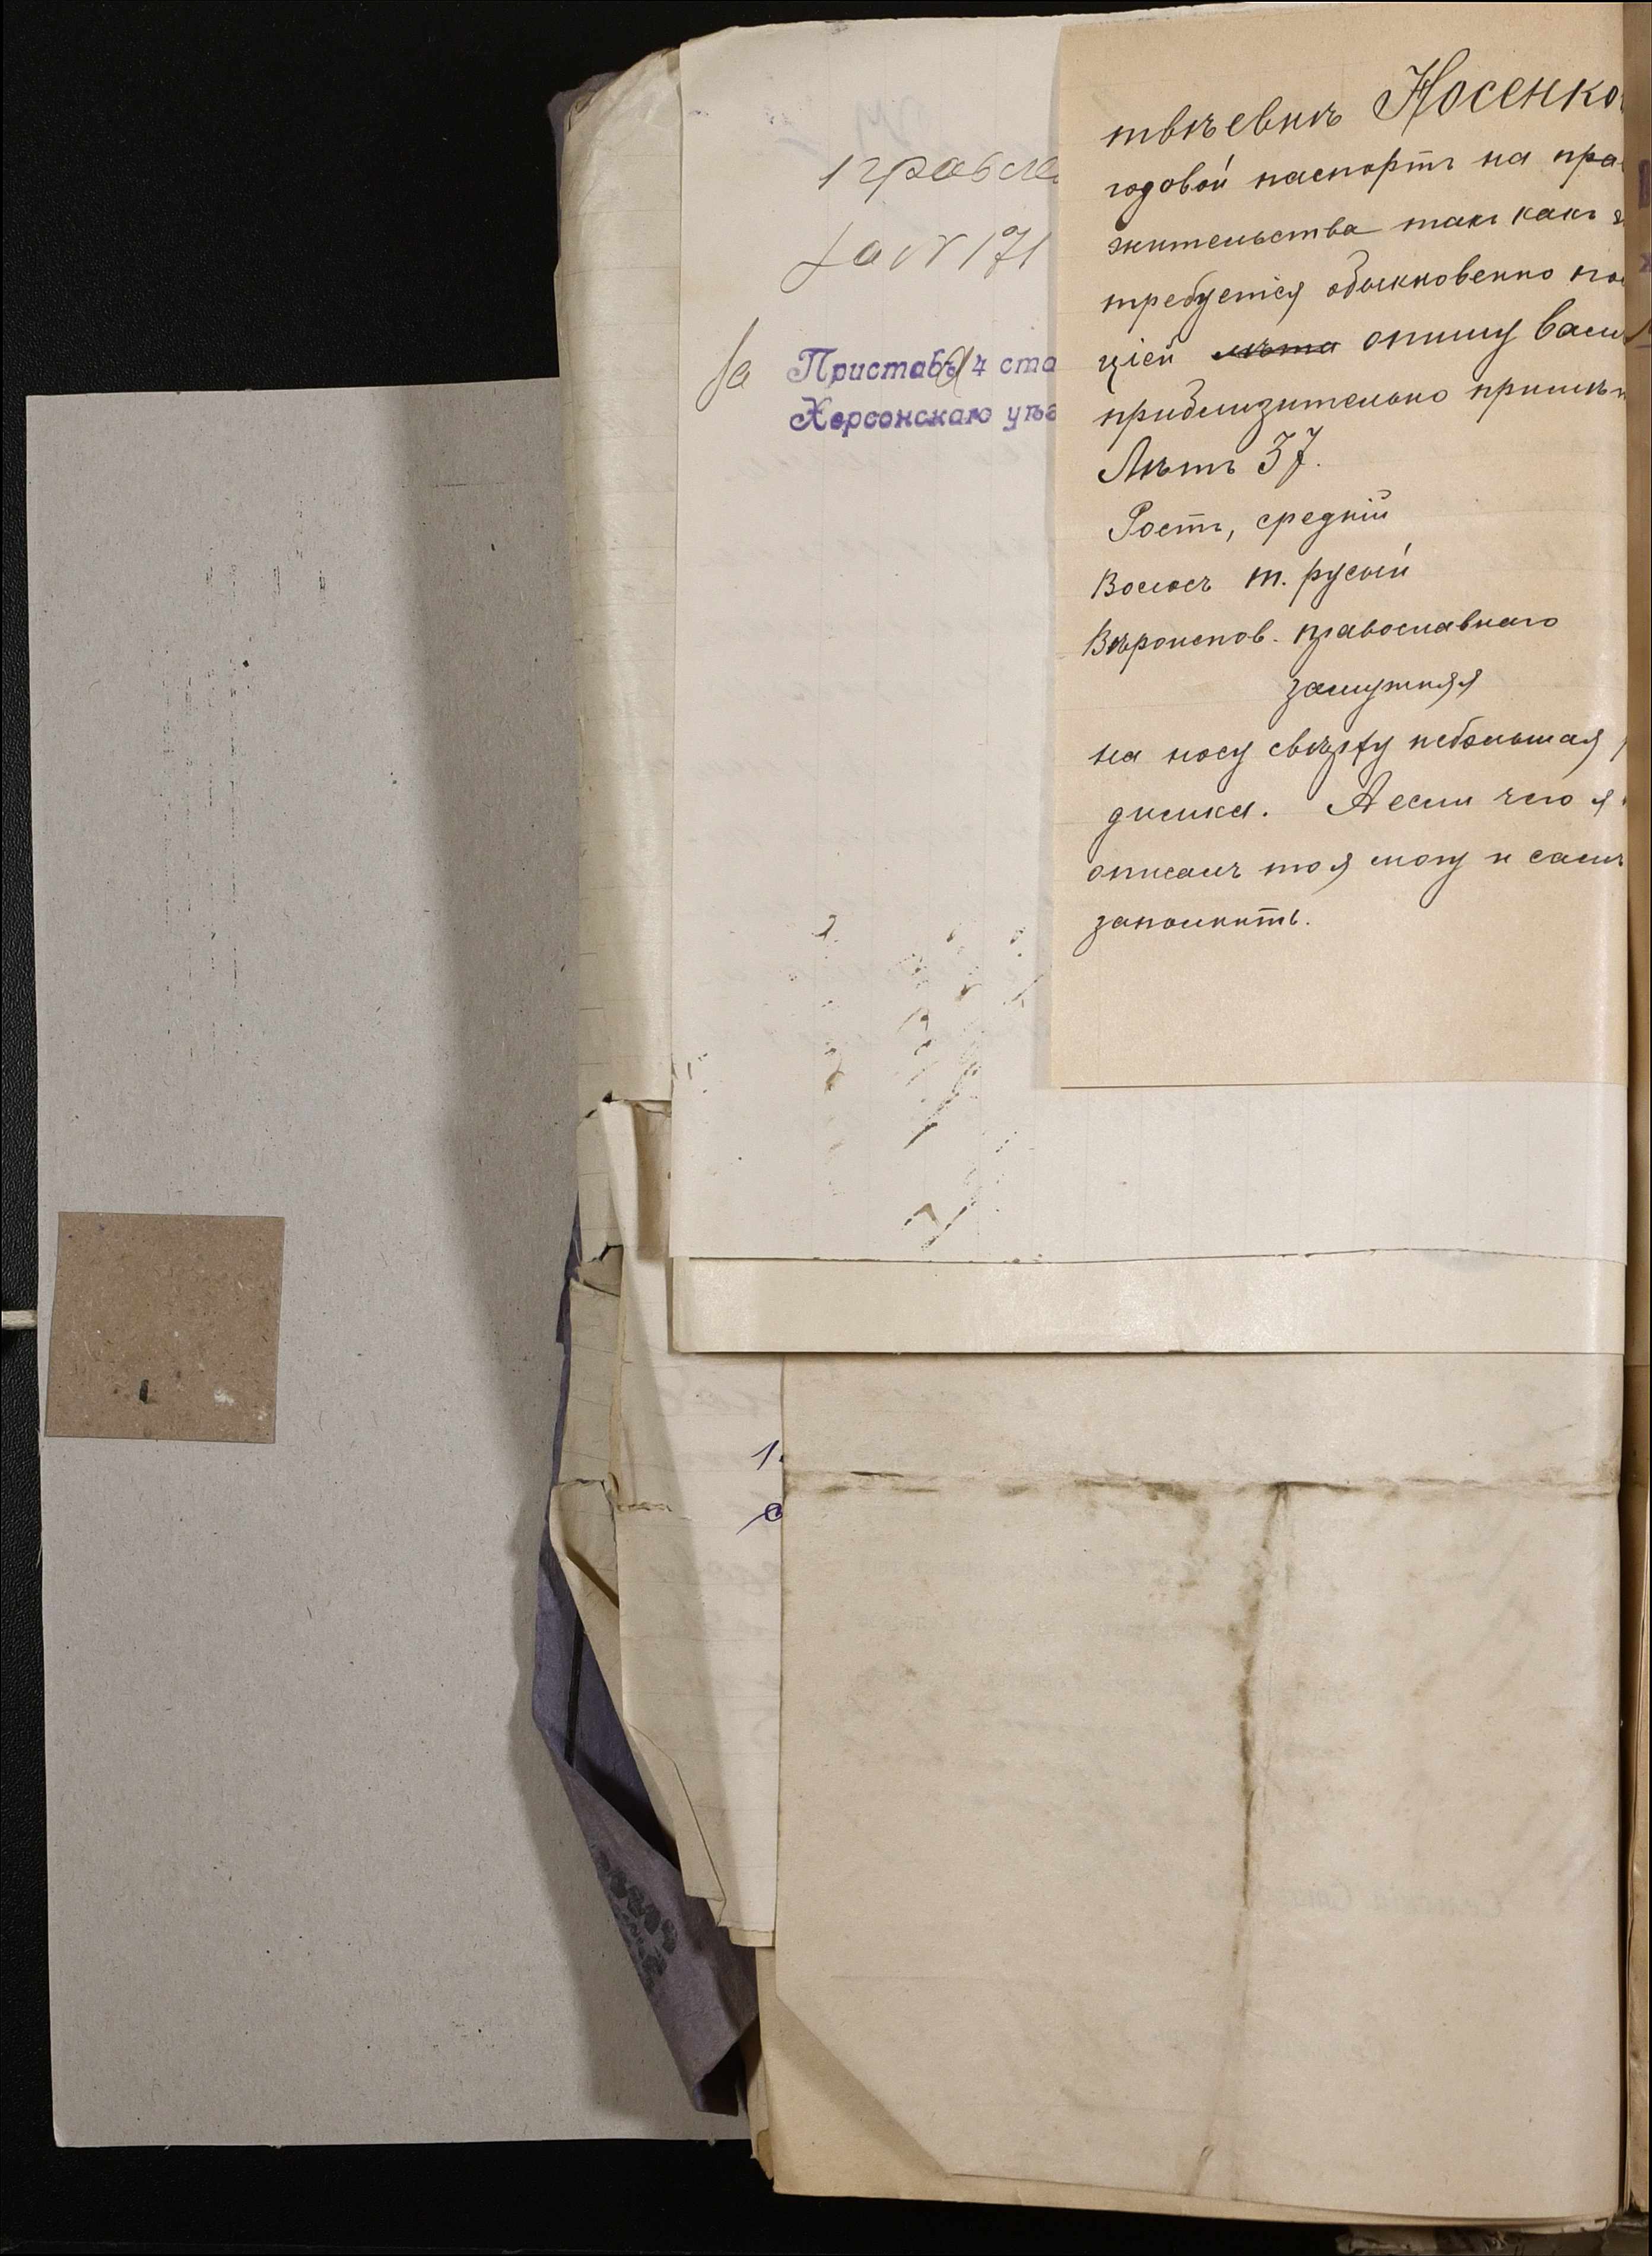 За № 171
Приставъ 4 ста
Херсонскаго уѣз
твѣевнѣ Носенко
годовой паспортъ на пра
жительства такъ какъ
требуется обыкновенно по
ціей лѣта опишу вами
приблизительно примѣ
Лѣтъ 37.
Ростъ, средній
Волосъ т. русый
Вѣроиспов. православнаго
замужняя
на носу свѣрху небольшая
динка. А если чего я
описалъ то я могу и самъ
запомнить.
1.